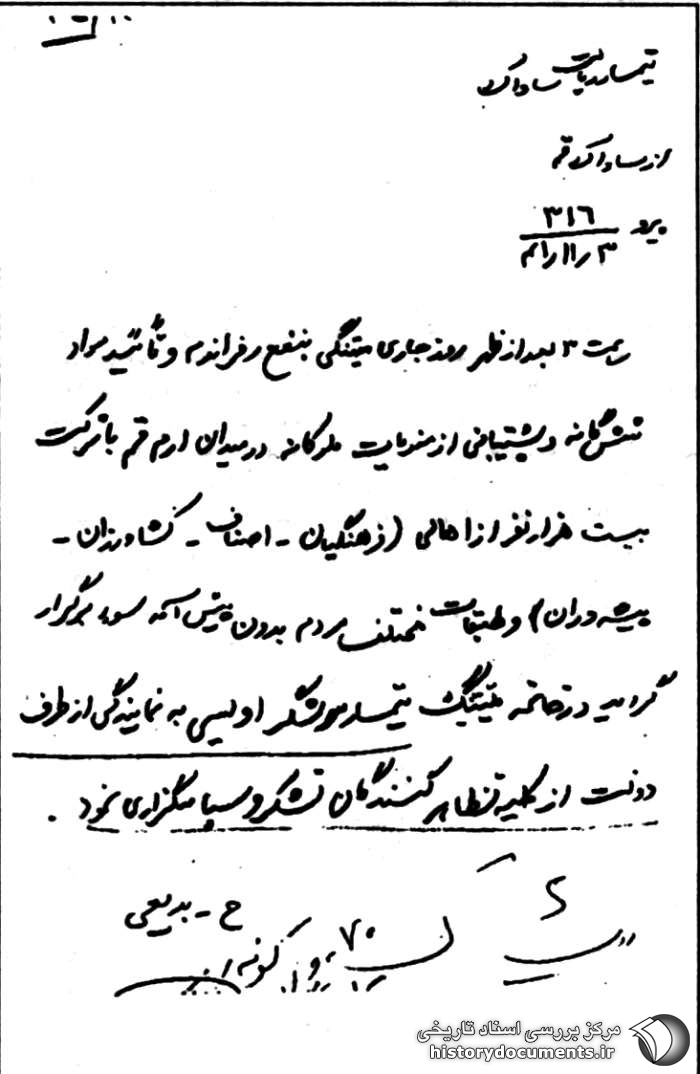 تیمسار ریاست ساواک
از ساواک قم
پیرو ۳۱۶
۳ر۱۱ر۴۱م
ساعت ۳ بعدازظهر روز جاری میتنگی بنفع رفراندم و تأئید مواد
ششگانه و پشتیبانی از منویات ملوکانه در میدان ارم قم با شرکت
بیست هزار نفر از اهالی (فرهنگیان - اصناف - کشاورزان -
پیشه وران) و طبقات مختلف مردم بدون پیش آمد سوء برگزار
گردید در خاتمه میتینگ تیمسار سرلشگر اویسی به نمایندگی از طرف
دولت از کلیه تظاهر کنندگان تشکر و سپاسگزاری نمود .
ح - بدیعی
۷۰
مرکز بررسی اسناد تاریخی
historydocuments.ir